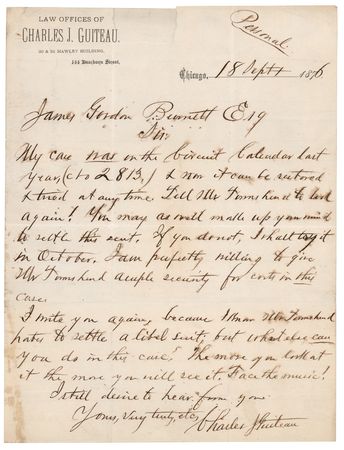 LAW OFFICES OF
CHARLES J. GUITEAU.
HAWLEY BUILDING,
Dearborn Street,
Personal.
Chicago, 18 Sept 1876
James Gordon Bennett Esq
Sir
My case was on the Circuit Calendar last
year, (c to 2813,) & now it can be restored
& tried at any time. Tell Mr Townshend to look
again! You may as well make up your mind
to settle this suit. If you do not, I shall try it
in October. I am perfectly willing to give
Mr Townshend ample security for costs in this
case.
I write you again, because I know Mr Townshend
hates to settle a libel suit, but what else can
you do in this case? The more you look at
it the more you will see it. Face the music!
I still desire to hear from you.
Yours, very truly, etc,
Charles J Guiteau